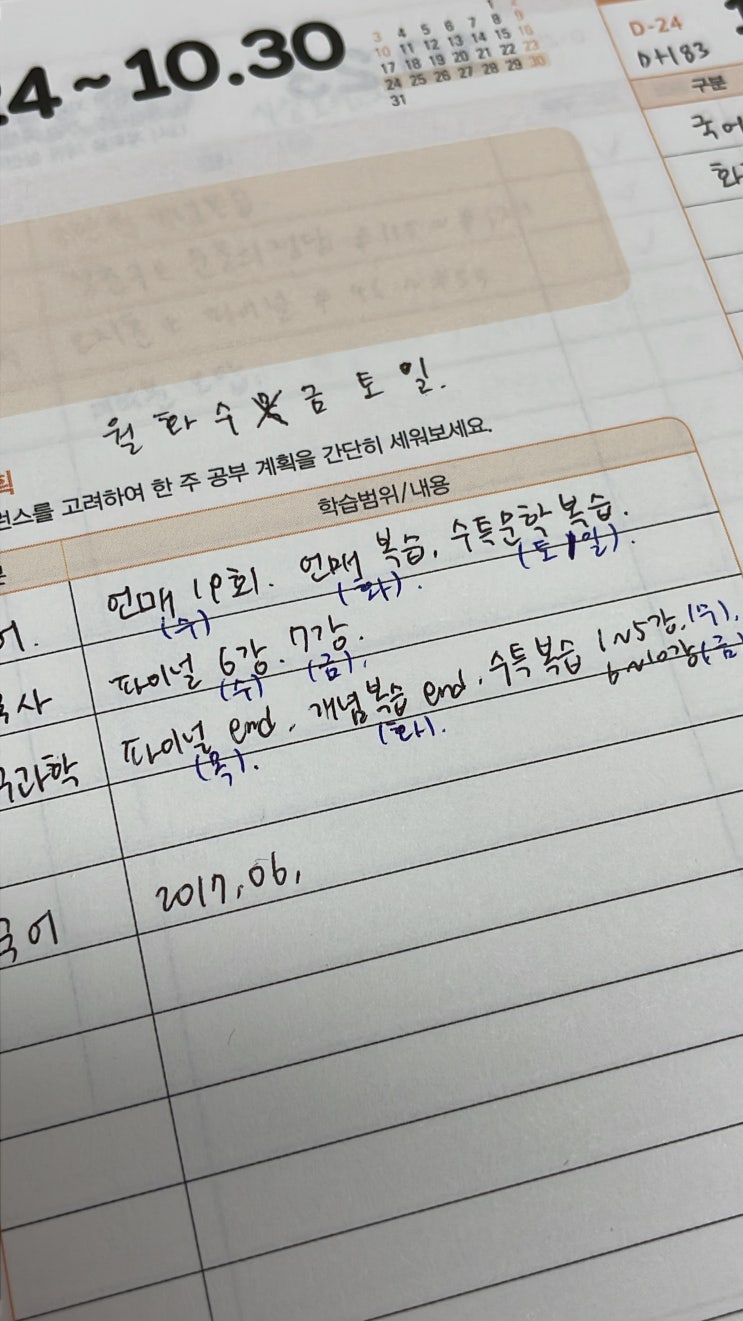 4~10.30
1 2
3 4 5 6 7 8 9
10 11 12 13 14 15 16
17 18 19 20 21 22 23
24 25 26 27 28 29 30
31
D-24
D+183
구분
국어
화
월 화 수 목 금 토 일.
획
런스를 고려하여 한 주 공부 계획을 간단히 세워보세요.
학습범위/내용
어. 언매 19회. 언매 복습. 수특문학 복습.
(수) (화). (토, 일).
사 파이널 6강. 7강.
(수) (금).
과학 파이널 end. 개념복습 end. 수특 복습 1~5강.(수).
(목). (화). 6~10강(금)
국어 2017.06.